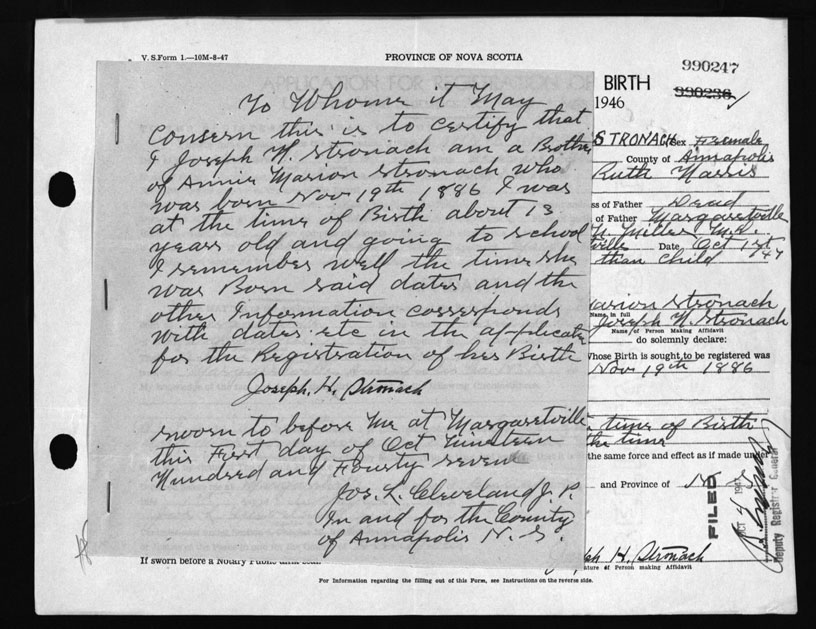 V. S. Form 1.—10M-8-47
PROVINCE OF NOVA SCOTIA
990247
990236
BIRTH
1946
To Whome it May
Concern this is to certify that
I Joseph H. Stronach am a Brother
of Annie Marion Stronach who
was born Nov 19th 1886 I was
at the time of Birth about 13
years old and going to school
I remember well the time she
was Born said dates and the
other Information corresponds
with dates etc in the application
for the Registration of her Birth
Joseph. H. Stronach
sworn to before me at Margaretville
this First day of Oct Nineteen
Hundred and Fourty seven
Jos. L. Cleveland J. P.
In and for the County
of Annapolis N. S.
STRONACH Sex Female
County of Annapolis
Ruth Harris
ss of Father Dead
of Father Margaretville
Miller M.D.
ville Date Oct 1st
than child 47
Marion Stronach
Name in full
Joseph H. Stronach
Name of Person Making Affidavit
do solemnly declare:
whose Birth is sought to be registered was
Nov 19th 1886
time of Birth
the time
the same force and effect as if made under
and Province of N. S.
FILED
OCT 4 1947
Deputy Registrar General
Joseph H. Stronach
ature of Person making Affidavit
If sworn before a Notary Public
For Information regarding the filling out of this Form, see Instructions on the reverse side.